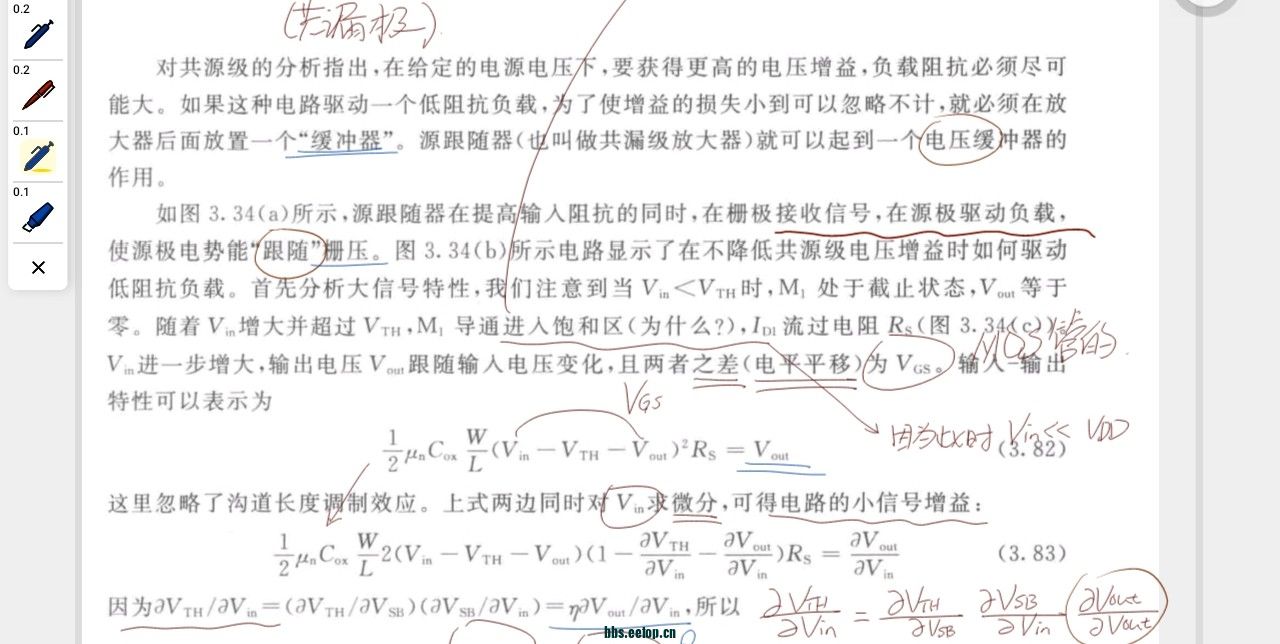 0.2
0.2
0.1
0.1
(共漏极)
对共源级的分析指出,在给定的电源电压下,要获得更高的电压增益,负载阻抗必须尽可
能大。如果这种电路驱动一个低阻抗负载,为了使增益的损失小到可以忽略不计,就必须在放
大器后面放置一个“缓冲器”。源跟随器(也叫做共漏级放大器)就可以起到一个电压缓冲器的
作用。
如图 3.34(a)所示,源跟随器在提高输入阻抗的同时,在栅极接收信号,在源极驱动负载,
使源极电势能“跟随”栅压。图 3.34(b)所示电路显示了在不降低共源级电压增益时如何驱动
低阻抗负载。首先分析大信号特性,我们注意到当 Vin<VTH时,M1 处于截止状态,Vout等于
零。随着 Vin增大并超过 VTH,M1 导通进入饱和区(为什么?),ID1流过电阻 RS(图 3.34(c))
MOS管的
Vin进一步增大,输出电压 Vout跟随输入电压变化,且两者之差(电平平移)为 VGS。输入-输出
特性可以表示为
VGS
因为此时 Vin<< VDD
1/2 μnCox W/L (Vin − VTH − Vout)²RS = Vout (3.82)
这里忽略了沟道长度调制效应。上式两边同时对 Vin求微分,可得电路的小信号增益:
1/2 μnCox W/L 2(Vin − VTH − Vout)(1 − ∂VTH/∂Vin − ∂Vout/∂Vin)RS = ∂Vout/∂Vin (3.83)
因为∂VTH/∂Vin=(∂VTH/∂VSB)(∂VSB/∂Vin)=η∂Vout/∂Vin,所以
∂VTH/∂Vin = ∂VTH/∂VSB ∂VSB/∂Vin ∂Vout/∂Vout
bbs.eetop.cn